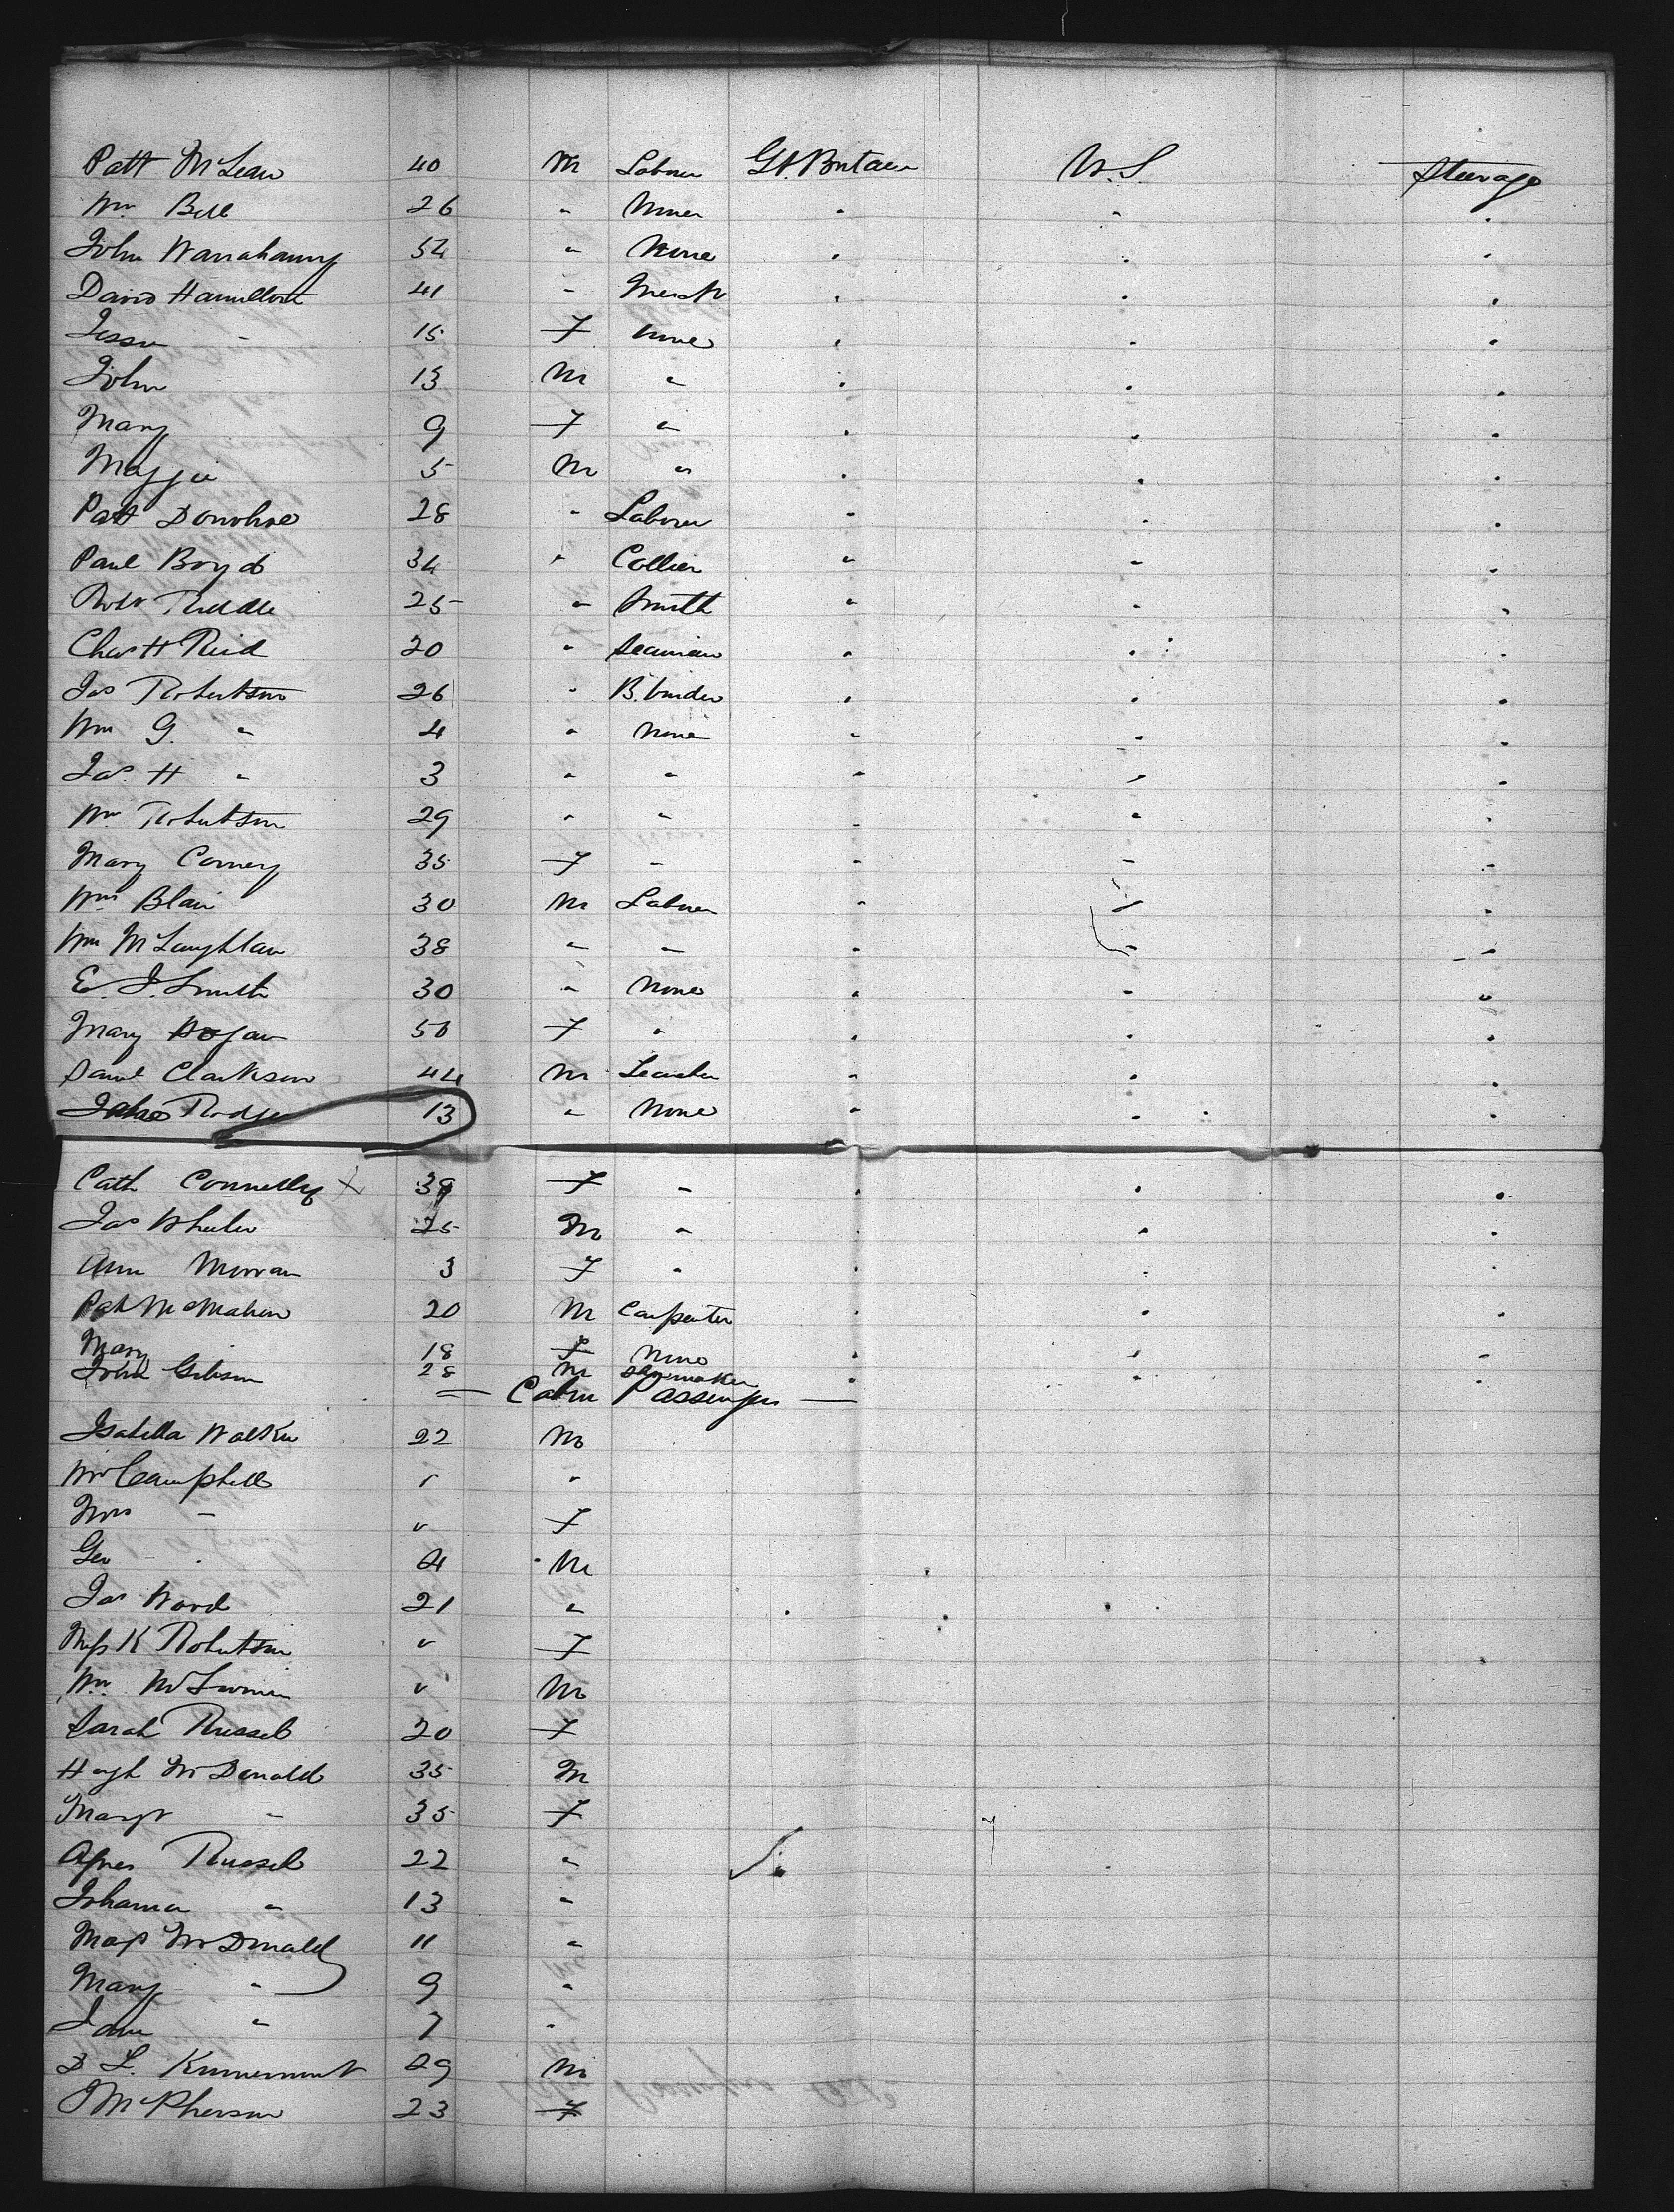 Patt McLean 40 M Laborer Gt. Britain U.S. Steerage
Wm Bell 26 " Miner " " "
John 52 " None " " "
David Hamilton 41 " Mercht " " "
Jessie " 15 F None " " "
John 13 M " " " "
Mary 9 F " " " "
Maggie 5 M " " " "
Patt Donohoe 28 " Laborer " " "
Paul Boyd 34 " Collier " " "
Robt Riddle 25 " Smith " " "
Chas H Reid 20 " Seaman " " "
Jas Robertson 26 " B. binder " " "
Wm G. " 4 " None " " "
Jas. H " 3 " " " " "
Wm Robertson 29 " " " " "
Mary Comery 35 F " " " "
Wm Blair 30 M Laborer " " "
Wm McLaughlan 38 " " " " "
E. J. Smith 30 " None " " "
Mary Hogan 50 F " " " "
Saml Clarkson 44 M Teacher " " "
Rodger 13 " None " " "
Cath Connelly X 39 F " " " "
Jas Wheeler 25 M " " " "
Ann Morran 3 F " " " "
Pat McMahon 20 M Carpenter " " "
Mary 18 F None " " "
John Gibson 28 M Shoemaker " " "
— Cabin Passengers —
Isabella Walker 22 M
Mr Campbell v "
Mrs " v F
Geo " 4 M
Jas Ward 21 "
Miss K Robertson v F
Wm v M
Sarah Russell 20 F
Hugh McDonald 35 M
Margt " 35 F
Agnes Russell 22 "
Johanna " 13 "
McDonald 11 "
Mary " 9 "
Jane " 7 "
D L. 29 M
J McPherson 23 F